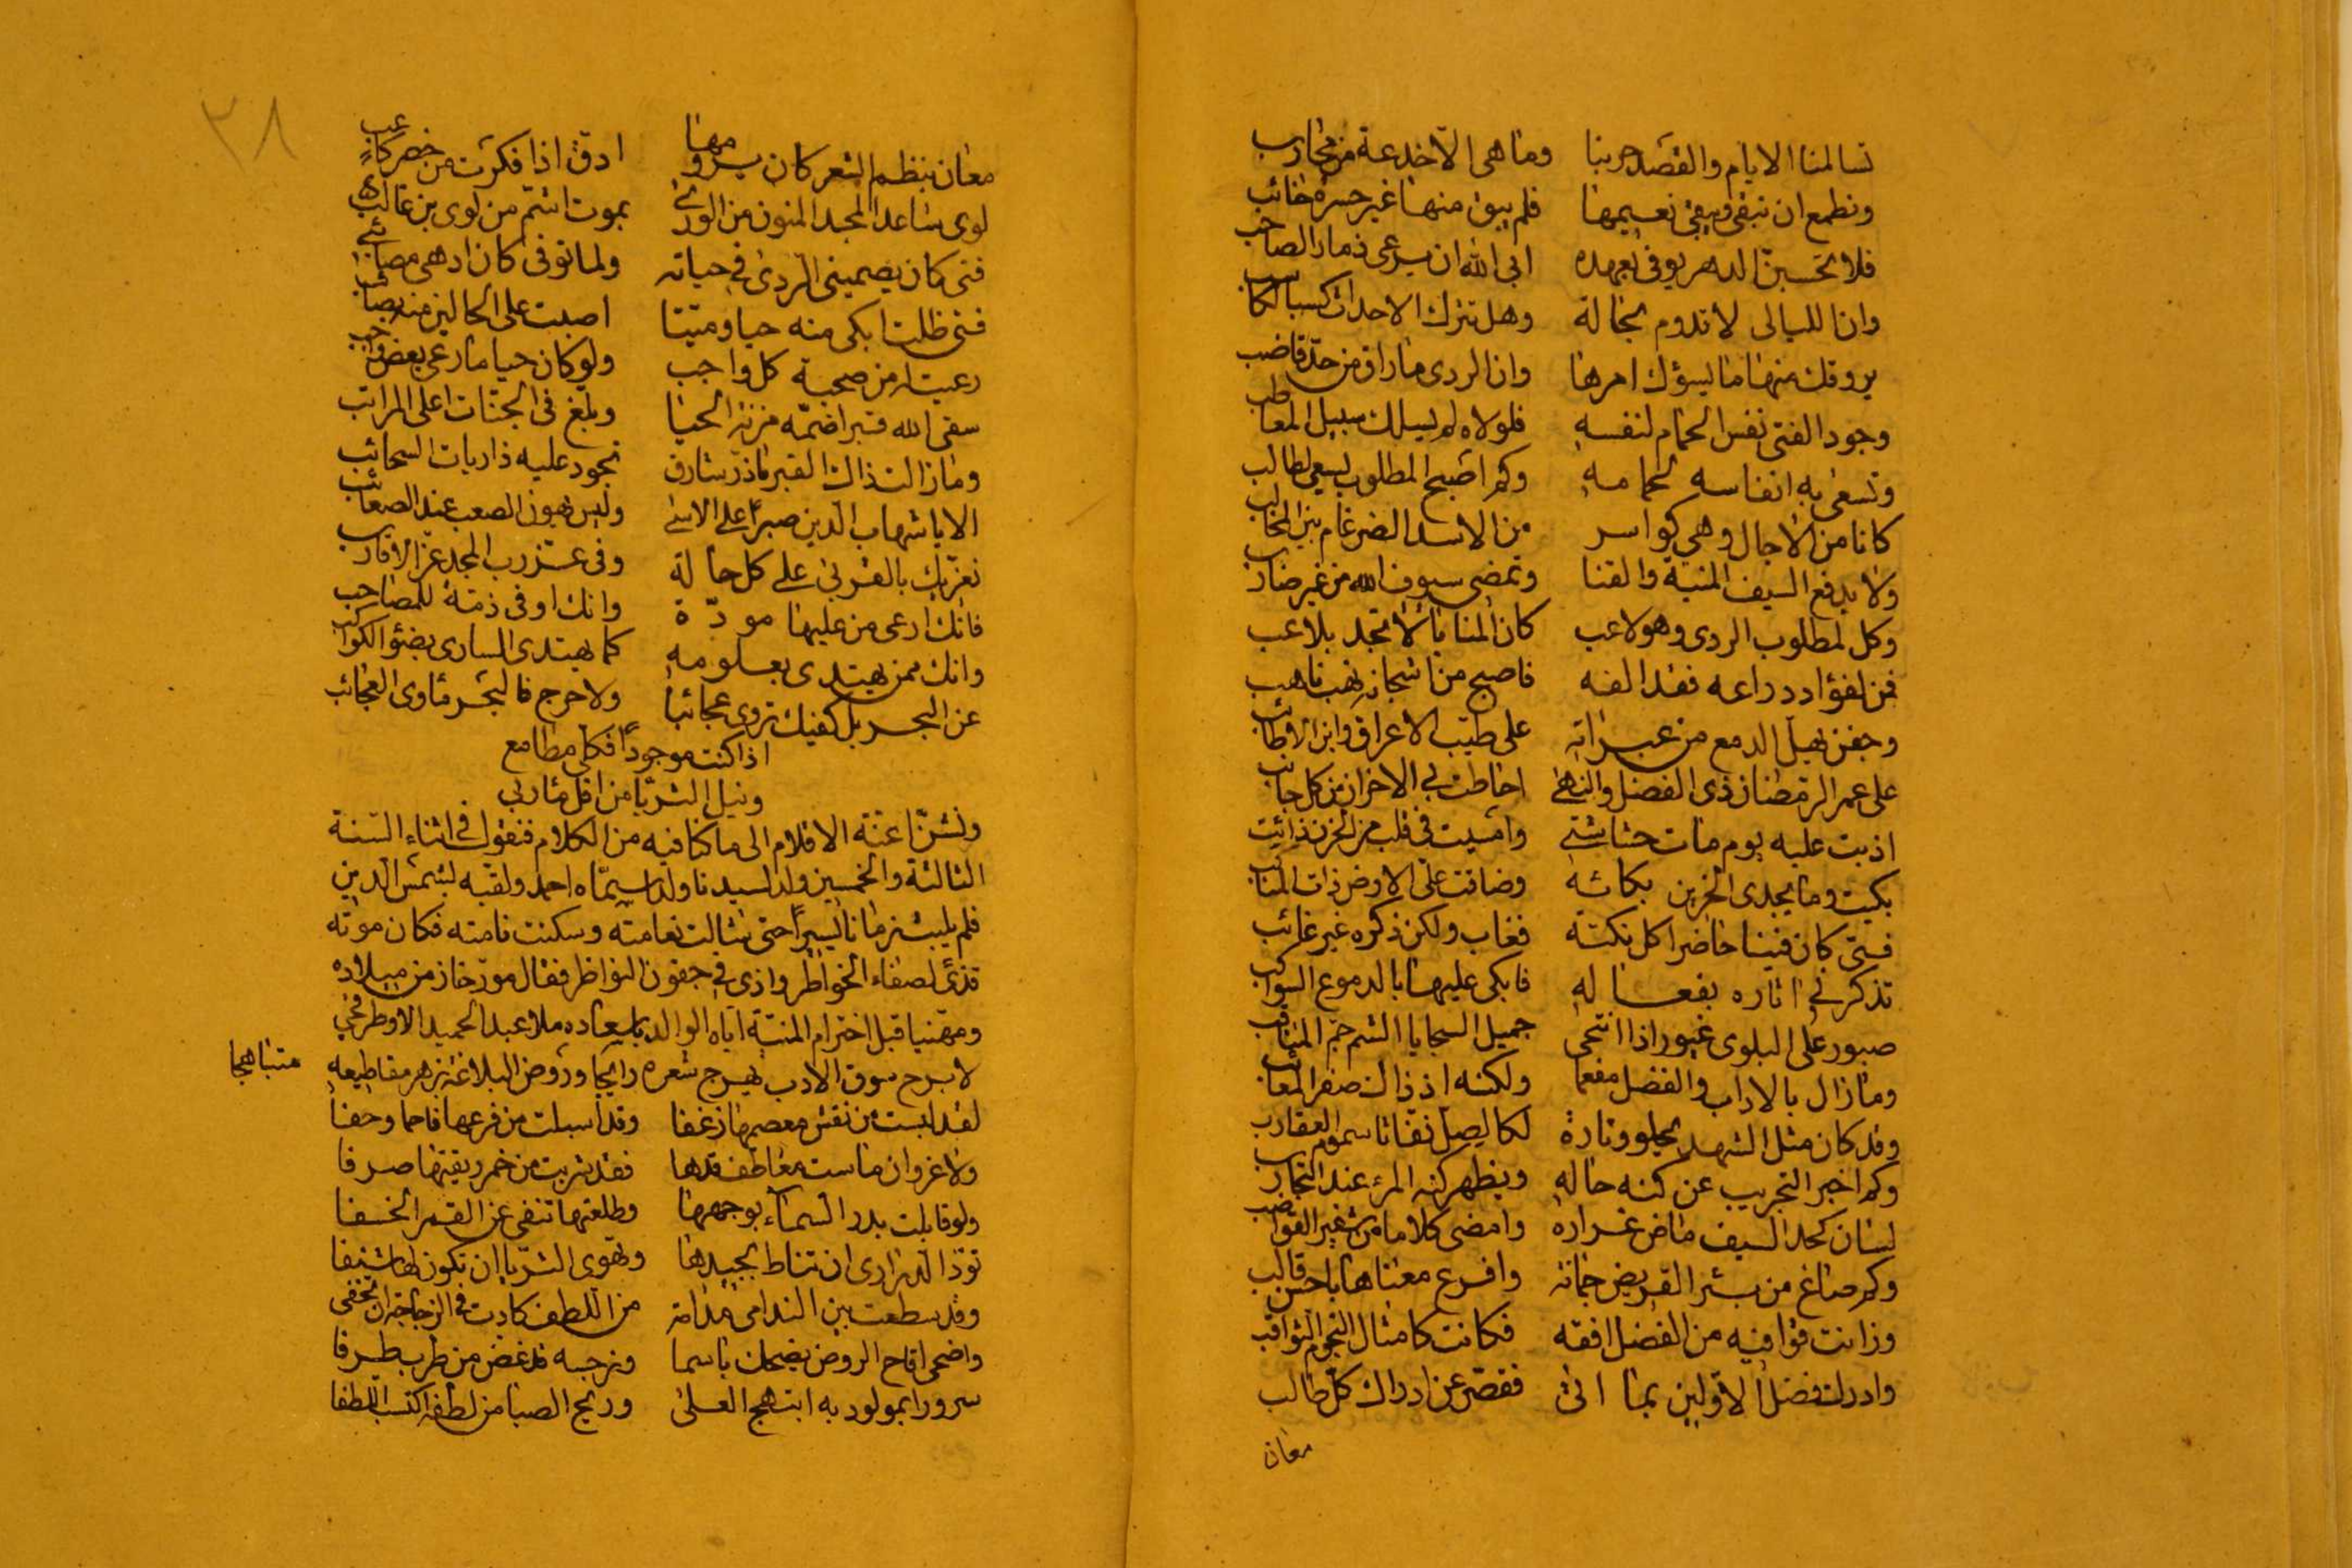 تسالمنا الايام والقصد حربنا وما هى الا خدعة من محارب
ونطمع ان نبقى ويبقى نعيمها فلم يبق منها غير حسرة خائب
فلا تحسبن الدهر يوفى بعهده ابى الله ان يرعى ذمار الصاحب
وان الليالى لا تدوم بحالة وهل تترك الاحداث كسبا لكاسب
يروقك منها ما يسؤك امرها وان الردى ما راق من حد قاضب
وجود الفتى نفس الحمام لنفسه فلولاه لم يسلك سبيل المعاطب
وتسعى به انفاسه لحمامه وكم اصبح المطلوب يسعى لطالب
كانا من الاجال وهى كواسر من الاسد الضرغام بين المخالب
ولا يدفع السيف المنية والقنا وتمضى سيوف الله من غير ضارب
وكل لمطلوب الردى وهو لاعب كان المنايا لا تجد بلاعب
فمن لفؤاد راعه فقد الفه فاصبح من اشجانه نهب ناهب
وجفن يهل الدمع من عبراته على طيب الاعراق وابن الاطائب
على عمر الرمضان ذى الفضل والنهى احاطت بى الاحزان من كل جانب
اذبت عليه يوم مات حشاشتى وامسيت فى قلب من الحزن ذائب
بكيت وما يجدى الحزين بكائه وضاقت على الارض ذات المناكب
فتى كان فينا حاضرا كل نكتة فغاب ولكن ذكره غير غائب
تذكرنى اثاره بفعاله فابكى عليها بالدموع السواكب
صبور على البلوى غيور اذا انتخى جميل السجايا الشم جم المناقب
وما زال بالاداب والفضل مفعما ولكنه اذ ذاك صفر المعائب
وقد كان مثل الشهد يحلو وتارة لكالصل نفاثا سموم العقارب
وكم اخبر التجريب عن كنه حاله ويظهر كنه المرء عند التجارب
لسان كحد السيف ماض غراره وامضى كلاما من شغير القواضب
وكم صاغ من بتر القريض جمانة وافرغ معناها باحسن قالب
وزانت قوافيه من الفضل افقه فكانت كامثال النجوم الثواقب
وادرك فضل الاولين بما اتى فقصر عن ادراك كل طالب
معان
٣٨
معان بنظم الشعر كان يرومها ادق اذا فكرت من خصر كاعب
لوى ساعد المجد المنون من الورى بموت اشم من لوى بن غالب
فتى كان يصمينى الردى فى حياته ولما توفى كان ادهى مصائبى
فتى ظلت ابكى منه حيا وميتا اصبت على الحالين منه بصائب
رعيت له من صحبة كل واجب ولو كان حيا ما رعى بعض واجبى
سقى الله قبرا ضمه مزنة الحيا وبلغ فى الجنات اعلى المراتب
وما زال ذاك القبر ما ذر شارق تجود عليه ذاريات السحائب
الا يا شهاب الدين صبرا على الاسى وليس يهون الصعب عند الصعائب
نعزيك بالقربى على كل حالة وفى عز رب المجد عز الاقارب
فانك ارعى من عليها مودة وانك اوفى ذمة للمصاحب
وانك ممن يهتدى بعلومه كما يهتدى السارى بضؤ الكواكب
عن البحر بل كفيك تروى عجائبا ولا حرج فالبحر مأوى العجائب
اذا كنت موجودا فكلى مطامع
ونيل الثريا من اقل مآربى
ونثنى اعنة الاقلام الى ما كنا فيه من الكلام فنقول فى اثناء السنة
الثالثة والخمسين ولد لسيدنا ولد سماه احمد ولقبه بشمس الدين
فلم يلبث زمانا يسيرا حتى شالت نعامته وسكنت نامته فكان موته
قذى لصفاء الخواطر واذى فى جفون النواظر فقال مورخا زمن ميلاده
ومهنيا قبل اخترام المنية اياه الوالد باسعاده ملا عبد الحميد الاطرقجى
لا برح سوق الادب بهرج شعره رائجا وروض البلاغة بزهر مقاطيعه
متباهجا
لقد لبست من نقش معصمها زغفا وقد اسبلت من فرعها فاحما وحفا
ولا غرو ان ماست معاطف قدها فقد شربت من خمر ريقتها صرفا
ولو قابلت بدر السماء بوجهها وطلعتها تنفى عن القمر الخسفا
تود الدرارى ان تناط بجيدها وتهوى الثريا ان تكون لها شنفا
وقد سطعت بين الندامى مدامة من اللطف كادت فى الزجاجة ان تخفى
واضحى اقاح الروض يضحك باسما ونرجسه قد غض من طرب طرفا
سرورا بمولود به ابتهج العلى وريح الصبا من لطفه اكتسب اللطفا